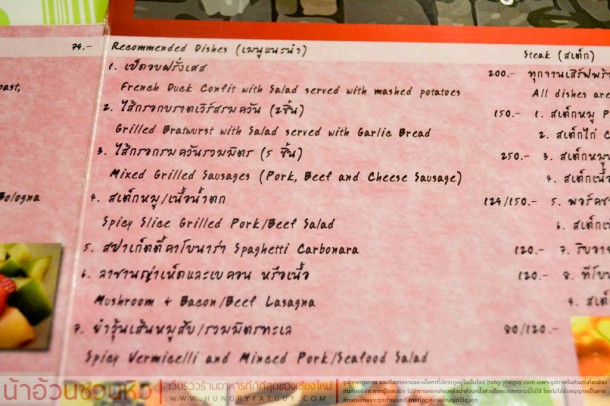 79.-
Recommended Dishes (เมนูแนะนำ)
1. เป็ดอบฝรั่งเศส 200.-
French Duck Confit with Salad served with mashed potatoes
2. ไส้กรอกบราตเวิร์สรมควัน (2ชิ้น) 150.-
Grilled Bratwurst with Salad served with Garlic Bread
3. ไส้กรอกรมควันรวมมิตร (5 ชิ้น) 250.-
Mixed Grilled Sausages (Pork, Beef and Cheese Sausage)
4. สเต็กหมู/เนื้อน้ำตก 129/150.-
Spicy Slice Grilled Pork/Beef Salad
5. สปาเก็ตตี้คาโบนาร่า Spaghetti Carbonara 120.-
6. ลาซานญ่าเห็ดและเบคอน หรือเนื้อ 120.-
Mushroom + Bacon/Beef Lasagna
7. ยำวุ้นเส้นหมูสับ/รวมมิตรทะเล 80/120.-
Spicy Vermicelli and Minced Pork/Seafood Salad
Bologna
Steak (สเต็ก)
ทุกจานเสิร์ฟพร้
All dishes are
1. สเต็กหมู P
2. สเต็กไก่ C
3. สเต็กหมู
4. สเต็กเนื้
5. พอร์คช
6. สเต็กเ
7. ริบอา
8. ทีโบ
9. สเต็
น้าอ้วนชวนหิว
เว็บรีวิวร้านอาหารที่ดีที่สุดของเชียงใหม่
WWW.HUNGRYFATGUY.COM